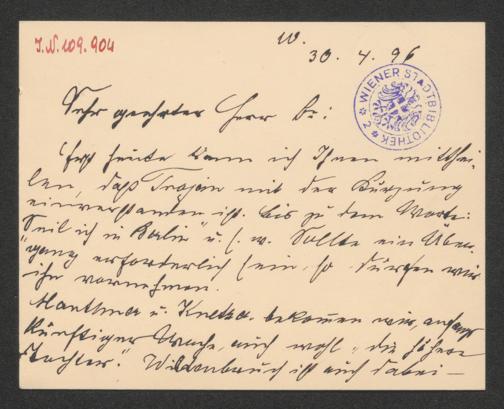 I.N. 109.904
W.
30. 4. 96
WIENER STADTBIBLIOTHEK
Sehr geehrter Herr Dr:
Erst heute kann ich Ihnen mitthei-
len, daß Trojan mit der Kürzung
einverstanden ist. bis zu dem Worte:
Seit ich in Berlin" u. s. w. Sollte ein Ueber-
"gang erforderlich sein, so dürfen wir
ihn vornehmen.
u. bekommen wir, anfangs
künftiger Woche, auch wohl "die höhere
Tochter." Wildenbruch ist auch dabei —